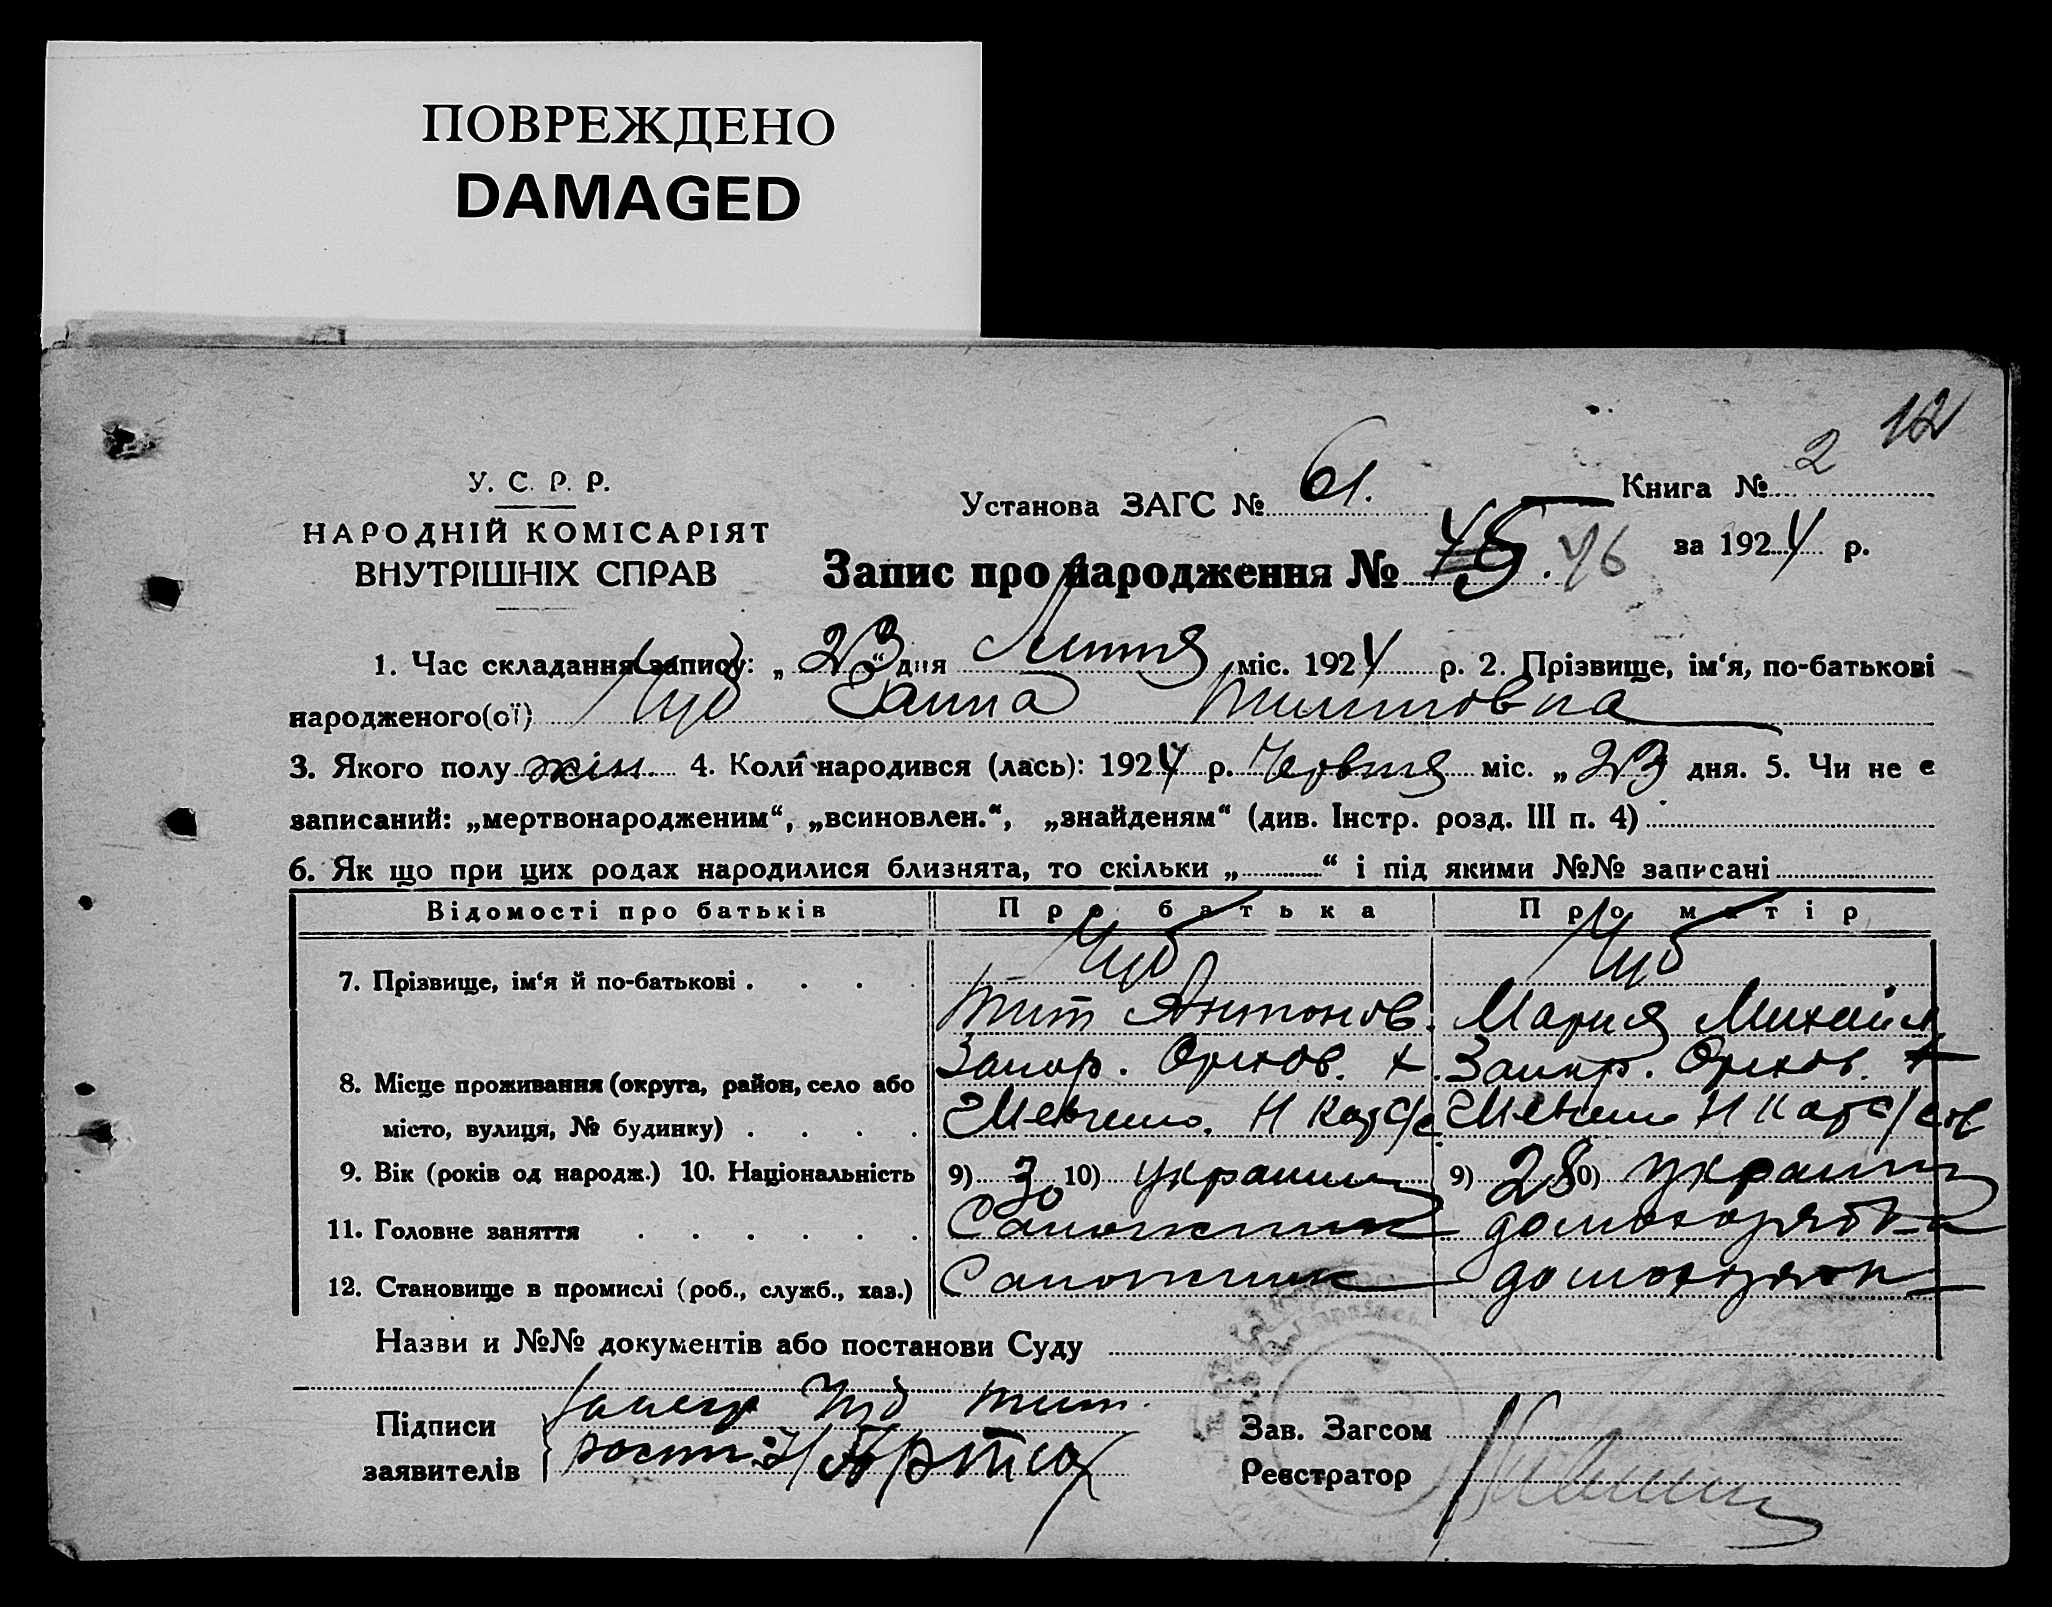 ПОВРЕЖДЕНО
DAMAGED
12
У. С. Р. Р.
НАРОДНІЙ КОМІСАРІЯТ
ВНУТРІШНІХ СПРАВ
Установа ЗАГС № 61.
Книга № 2
за 1924 р.
Запис про народження № 45. 46
1. Час складання запису: „23“ дня Липня міс. 1924 р. 2. Прізвище, ім‘я, по-батькові
народженого(ої) Чуб Ганна Титовна
3. Якого полу жін. 4. Коли народився (лась): 1924 р. Червня міс. „23 дня. 5. Чи не є
записаний: „мертвонародженим“, „всиновлен.“, „знайденям“ (див. Інстр. розд. III п. 4)
6. Як що при цих родах народилися близнята, то скільки „ “ і під якими №№ записані
Відомості про батьків Про батька Про матір
7. Прізвище, ім‘я й по-батькові Чуб Чуб
Тит Антонов. Мария Михайл.
8. Місце проживання (округа, район, село або Запор. Орехов. Запор. Орехов.
місто, вулиця, № будинку) Шевченко. Н Шевченко Н
9. Вік (років од народж.) 10. Національність 9) 30 10) украинец 9) 28 10) украин
11. Головне заняття Сапожник домохозяйка
12. Становище в промислі (роб., служб., хаз.) Сапожник домохозяйк
Назви и №№ документів або постанови Суду
Підписи Чуб Тит.
заявителів
Зав. Загсом
Реєстратор